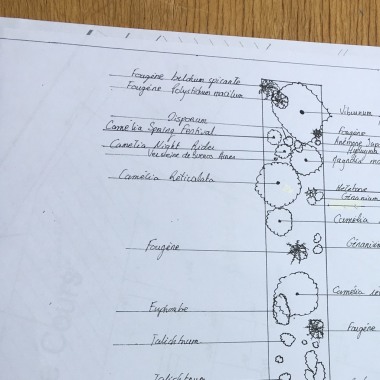 Fougère belchum spicante
Fougère Polystichum
Disporum
Camélia Spring Festival
Camélia Night Rider
Verveine de Buenos Aires
Camélia Reticulata
Fougère
Euphorbe
Talichtrum
Talichtrum
Viburnum
Fougère
Anémone Japo
Magnolia
Géranium
Camelia
Géranium
Camélia
Fougère